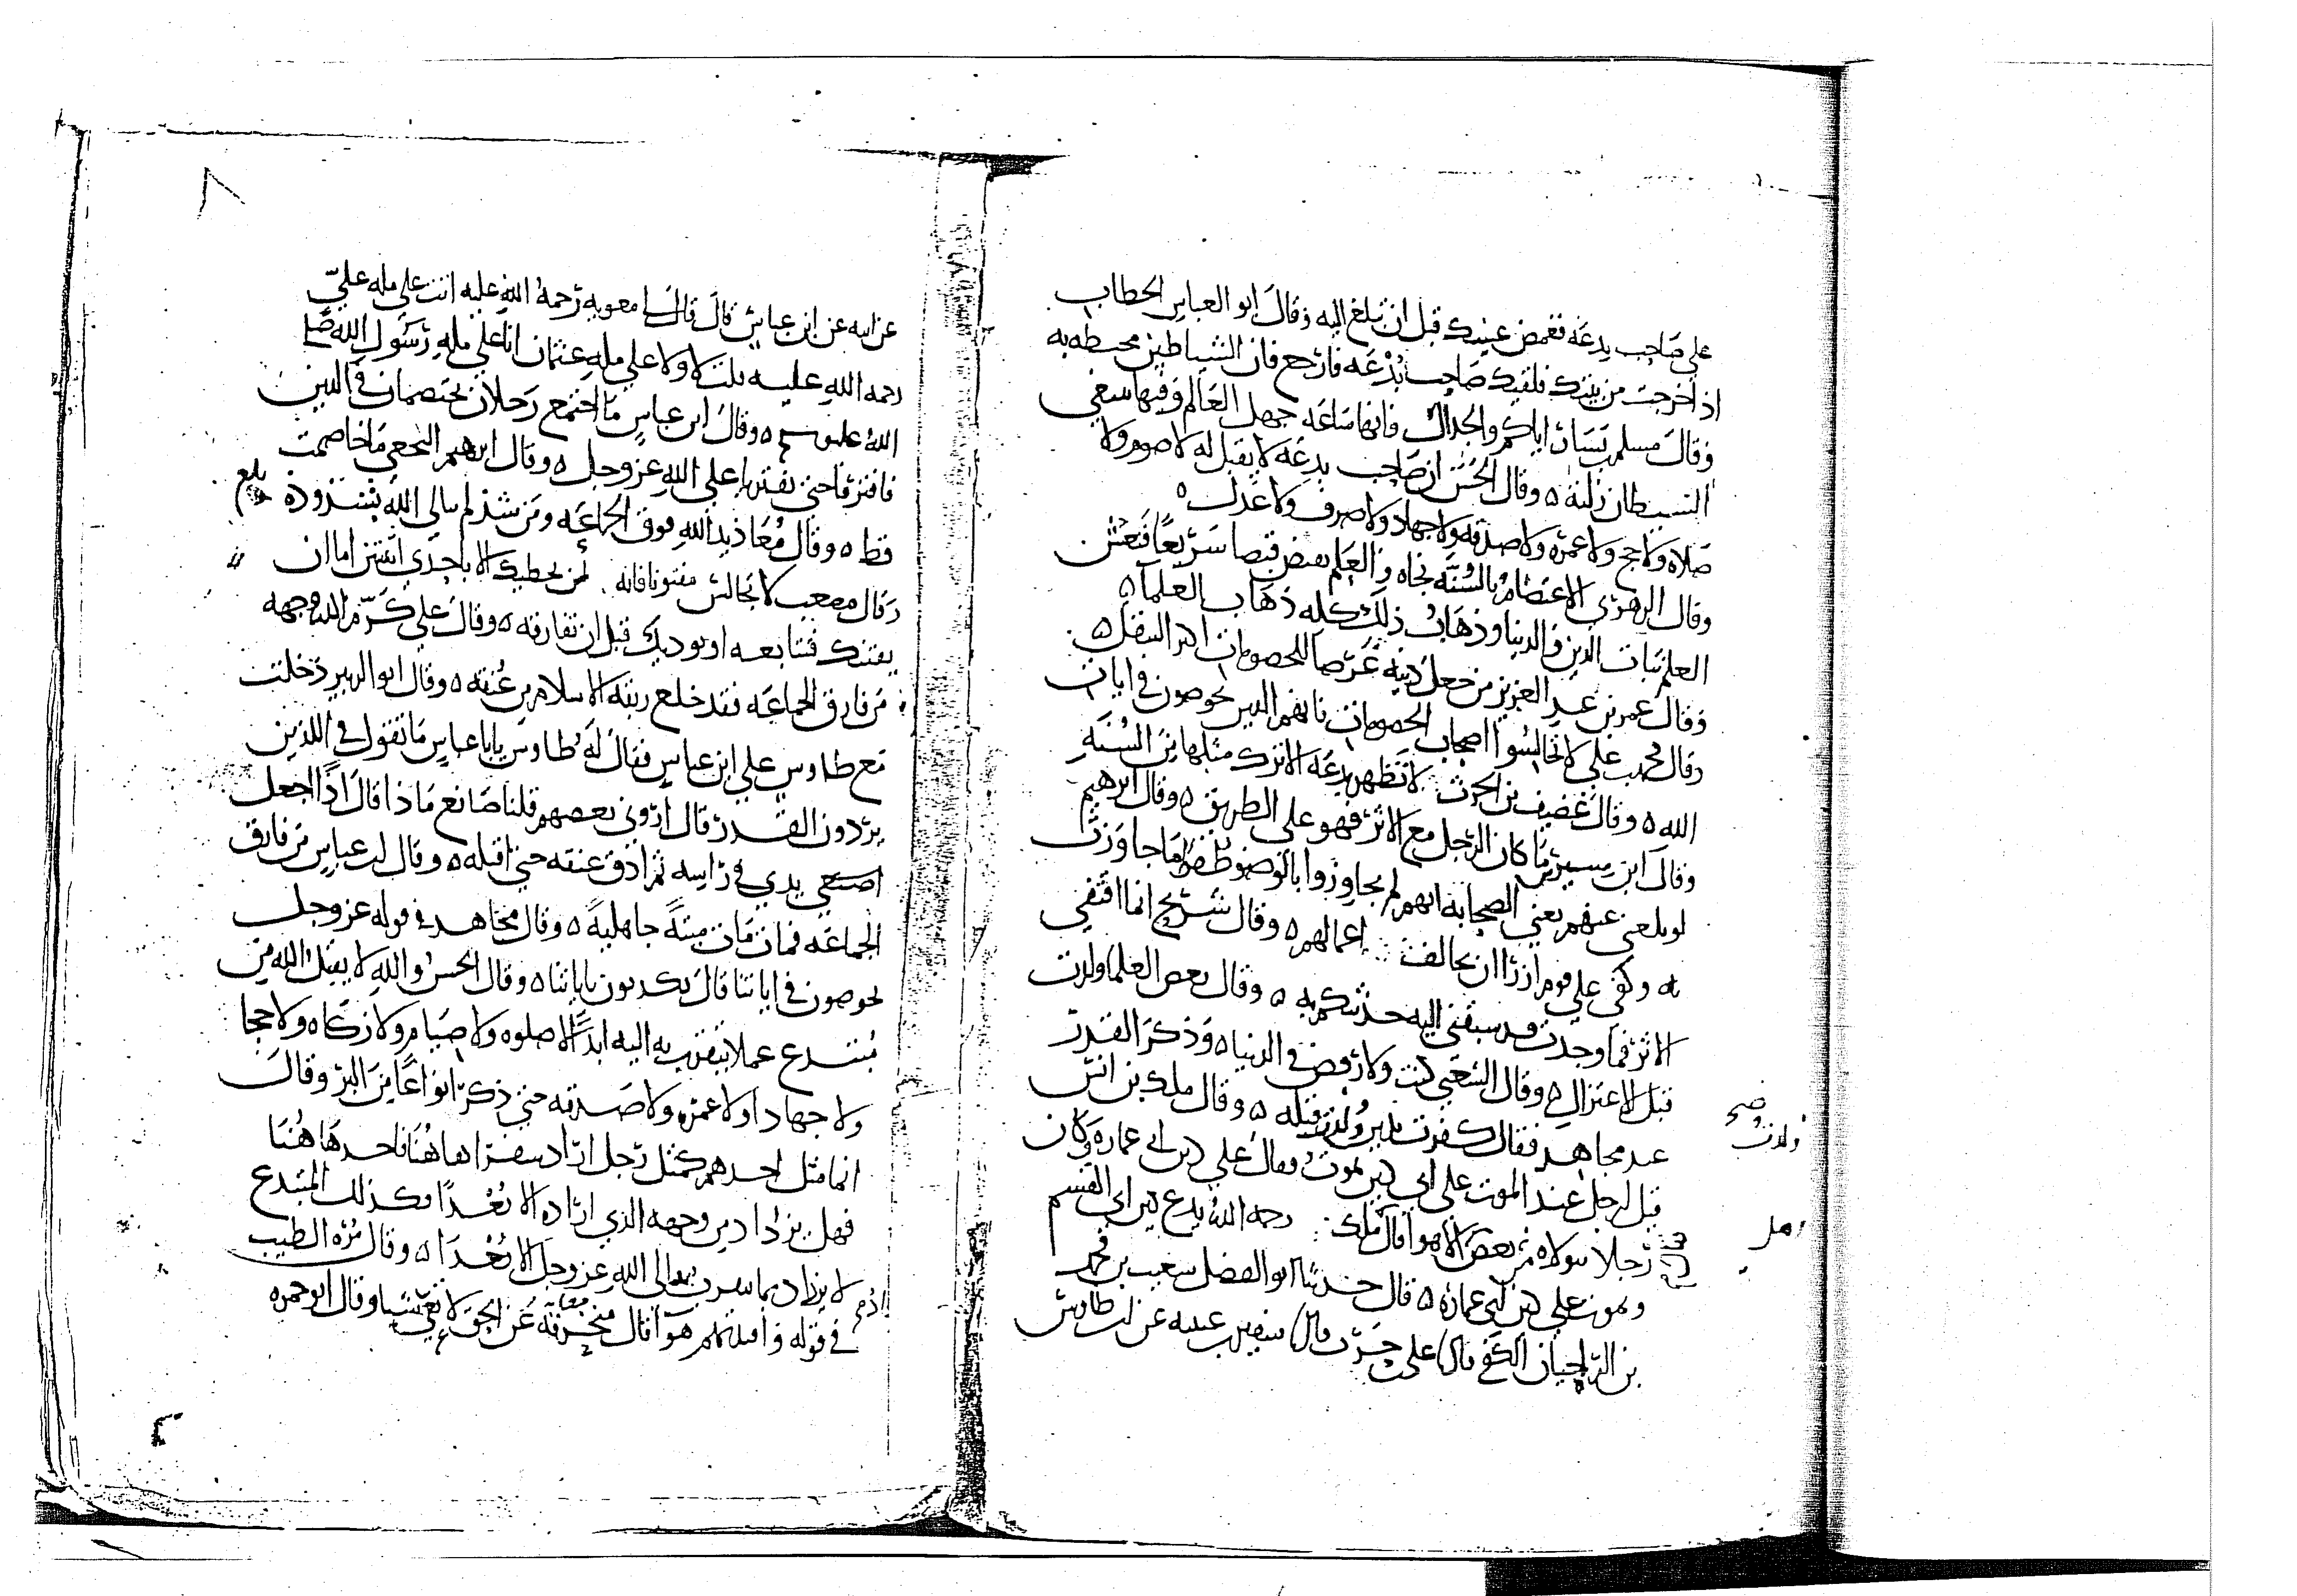 على صاحب بدعه فغمض عينيك قبل ان تبلغ اليه وقال ابو العباس الخطاب
اذا خرجت من بيتك فلقيك صاحب بدعه فارجع فان الشياطين محيطه به
وقال مسلم بن يسار اياكم والجدال فانها ساعه جهل العالم وفيها يبتغي
الشيطان زلته ه وقال الحسن ان صاحب بدعه لا يقبل له لا صوم ولا
صلاه ولا حج ولا عمره ولا صدقه ولا جهاد ولا صرف ولا عدل ه
وقال الزهري الاعتصام بالسنه نجاه والعلم يقبض قبضا سريعا فنعش
العلم ثبات الدين والدنيا وذهاب ذلك كله ذهاب العلما ه
وقال عمر بن عبد العزيز من جعل دينه غرضا للخصومات اكثر التنقل ه
وقال محمد بن علي لا تجالسوا اصحاب الخصومات فانهم الذين يخوضون في ايات
الله ه وقال غضيف بن الحرث لا تظهر بدعه الا ترك مثلها من السنه
وقال ابن سيرين ما كان الرجل مع الاثر فهو على الطريق ه وقال ابرهيم
لو بلغني عنهم يعني الصحابه انهم لم يجاوزوا بالوضو ظفرا ما جاوزت
به وكفى على قوم ازرا ان نخالف اعمالهم ه وقال شريح انما اقتفي
الاثر فما وجدت قد سبقني اليه حدثتكم به ه وقال بعض العلما ولدت
قبل الاعتزال ه وقال الشعبي كنت ولا رفض في الدنيا ه وذكر القدر
عند مجاهد فقال كفرت بدين ولدت قبله ه وقال ملك بن انس
قيل لرجل عند الموت على اي دين تموت فقال على دين ابي عماره وكان
رجلا يتولاه من بعض الاهوا قال ملك رحمه الله يدع دين ابي القسم
ويموت على دين ابي عماره ه قال حدثنا ابو الفضل شعيب بن محمد
بن الراجيان الكفي قال علي بن حرب قال سفين بن عيينه عن ابن طاوس
صح
ولدت
عن ابيه عن ابن عباس قال قال لي معويه رحمه الله عليه انت على مله علي
رحمه الله عليه قلت لا ولا على مله عثمان انا على مله رسول الله صلى
الله عليه وسلم ه وقال ابن عباس ما اجتمع رجلان يختصمان في الدين
فافترقا حتى يفتريا على الله عز وجل ه وقال ابرهيم النخعي ما خاصمت
قط ه وقال معاذ يد الله فوق الجماعه ومن شذ لم يبالي الله بشذوذه
بلغ
وقال مصعب لا تجالس مفتونا فانه لن يخطيك الا باحدى اثنتين اما ان
يفتنك فتتابعه او يوذيك قبل ان تفارقه ه وقال علي كرم الله وجهه
من فارق الجماعه فقد خلع ربقه الاسلام من عنقه ه وقال ابو الزبير دخلت
مع طاوس على ابن عباس فقال له طاوس يابا عباس ما تقول في الذين
يردون القدر قال اروني بعضهم قلنا صانع ماذا قال اذا اجعل
اصبعي يدي في راسه ثم ادق عنقه حتى اقتله ه وقال ابن عباس من فارق
الجماعه فمات مات ميته جاهليه ه وقال مجاهد في قوله عز وجل
يخوضون في اياتنا قال يكذبون باياتنا ه وقال الحسن والله لا يقبل الله من
مبتدع عملا يتقرب به اليه ابدا لا صلوه ولا صيام ولا زكاه ولا حجا
ولا جهادا ولا عمره ولا صدقه حتى ذكر انواعا من البر وقال
انما مثل احدهم كمثل رجل اراد سفرا هاهنا فاخذ هاهنا
فهل يزداد من وجهه الذي اراده الا بعدا وكذلك المبتدع
لا يزداد بما يتقرب به الى الله عز وجل الا بعدا ه وقال مره الطيب
في قوله وافئدتهم هوا قال منخرقه عن الحق لا تعي شيا وقال ابو حمزه